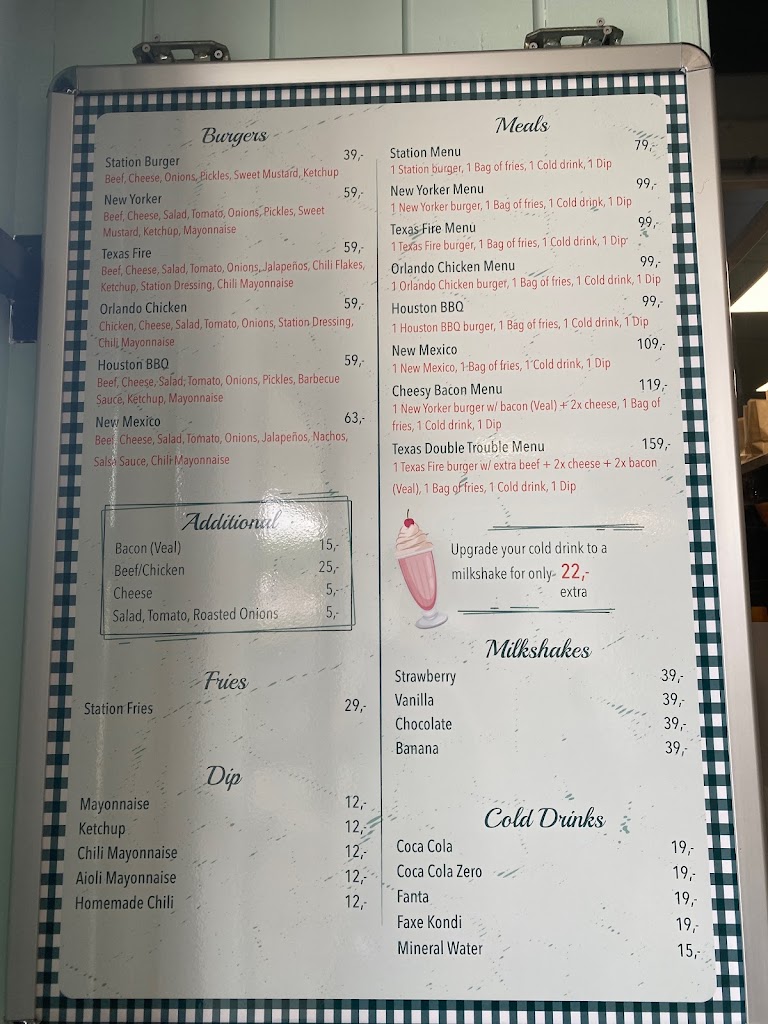 Burgers
Station Burger 39,-
Beef, Cheese, Onions, Pickles, Sweet Mustard, Ketchup
New Yorker 59,-
Beef, Cheese, Salad, Tomato, Onions, Pickles, Sweet
Mustard, Ketchup, Mayonnaise
Texas Fire 59,-
Beef, Cheese, Salad, Tomato, Onions, Jalapeños, Chili Flakes,
Ketchup, Station Dressing, Chili Mayonnaise
Orlando Chicken 59,-
Chicken, Cheese, Salad, Tomato, Onions, Station Dressing,
Chili Mayonnaise
Houston BBQ 59,-
Beef, Cheese, Salad, Tomato, Onions, Pickles, Barbecue
Sauce, Ketchup, Mayonnaise
New Mexico 63,-
Beef, Cheese, Salad, Tomato, Onions, Jalapeños, Nachos,
Salsa Sauce, Chili Mayonnaise
Additional
Bacon (Veal) 15,-
Beef/Chicken 25,-
Cheese 5,-
Salad, Tomato, Roasted Onions 5,-
Fries
Station Fries 29,-
Dip
Mayonnaise 12,-
Ketchup 12,-
Chili Mayonnaise 12,-
Aioli Mayonnaise 12,-
Homemade Chili 12,-
Meals
Station Menu 79,-
1 Station burger, 1 Bag of fries, 1 Cold drink, 1 Dip
New Yorker Menu 99,-
1 New Yorker burger, 1 Bag of fries, 1 Cold drink, 1 Dip
Texas Fire Menu 99,-
1 Texas Fire burger, 1 Bag of fries, 1 Cold drink, 1 Dip
Orlando Chicken Menu 99,-
1 Orlando Chicken burger, 1 Bag of fries, 1 Cold drink, 1 Dip
Houston BBQ 99,-
1 Houston BBQ burger, 1 Bag of fries, 1 Cold drink, 1 Dip
New Mexico 109,-
1 New Mexico, 1 Bag of fries, 1 Cold drink, 1 Dip
Cheesy Bacon Menu 119,-
1 New Yorker burger w/ bacon (Veal) + 2x cheese, 1 Bag of
fries, 1 Cold drink, 1 Dip
Texas Double Trouble Menu 159,-
1 Texas Fire burger w/ extra beef + 2x cheese + 2x bacon
(Veal), 1 Bag of fries, 1 Cold drink, 1 Dip
Upgrade your cold drink to a
milkshake for only 22,-
extra
Milkshakes
Strawberry 39,-
Vanilla 39,-
Chocolate 39,-
Banana 39,-
Cold Drinks
Coca Cola 19,-
Coca Cola Zero 19,-
Fanta 19,-
Faxe Kondi 19,-
Mineral Water 15,-